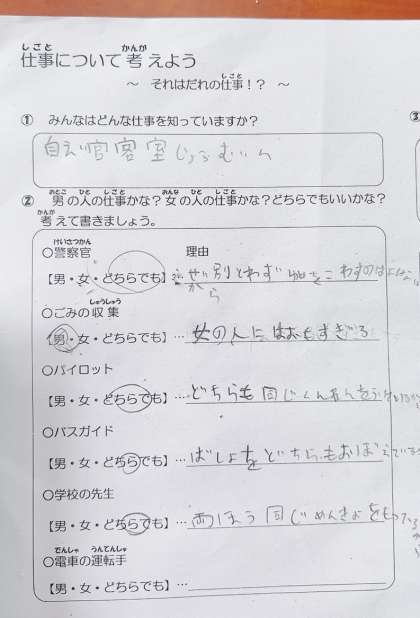 仕事について考えよう
～ それはだれの仕事！？ ～
① みんなはどんな仕事を知っていますか？
自えい官 客室じょうむいん
② 男の人の仕事かな？女の人の仕事かな？どちらでもいいかな？
考えて書きましょう。
○警察官 理由
【男・女・どちらでも】
○ごみの収集
【男・女・どちらでも】…女の人にはおもすぎる
○パイロット
【男・女・どちらでも】…どちらも同じくんれん
○バスガイド
【男・女・どちらでも】…ばしょをどちらもおぼえている
○学校の先生
【男・女・どちらでも】…両ほう同じめんきょをもってる
○電車の運転手
【男・女・どちらでも】…
③